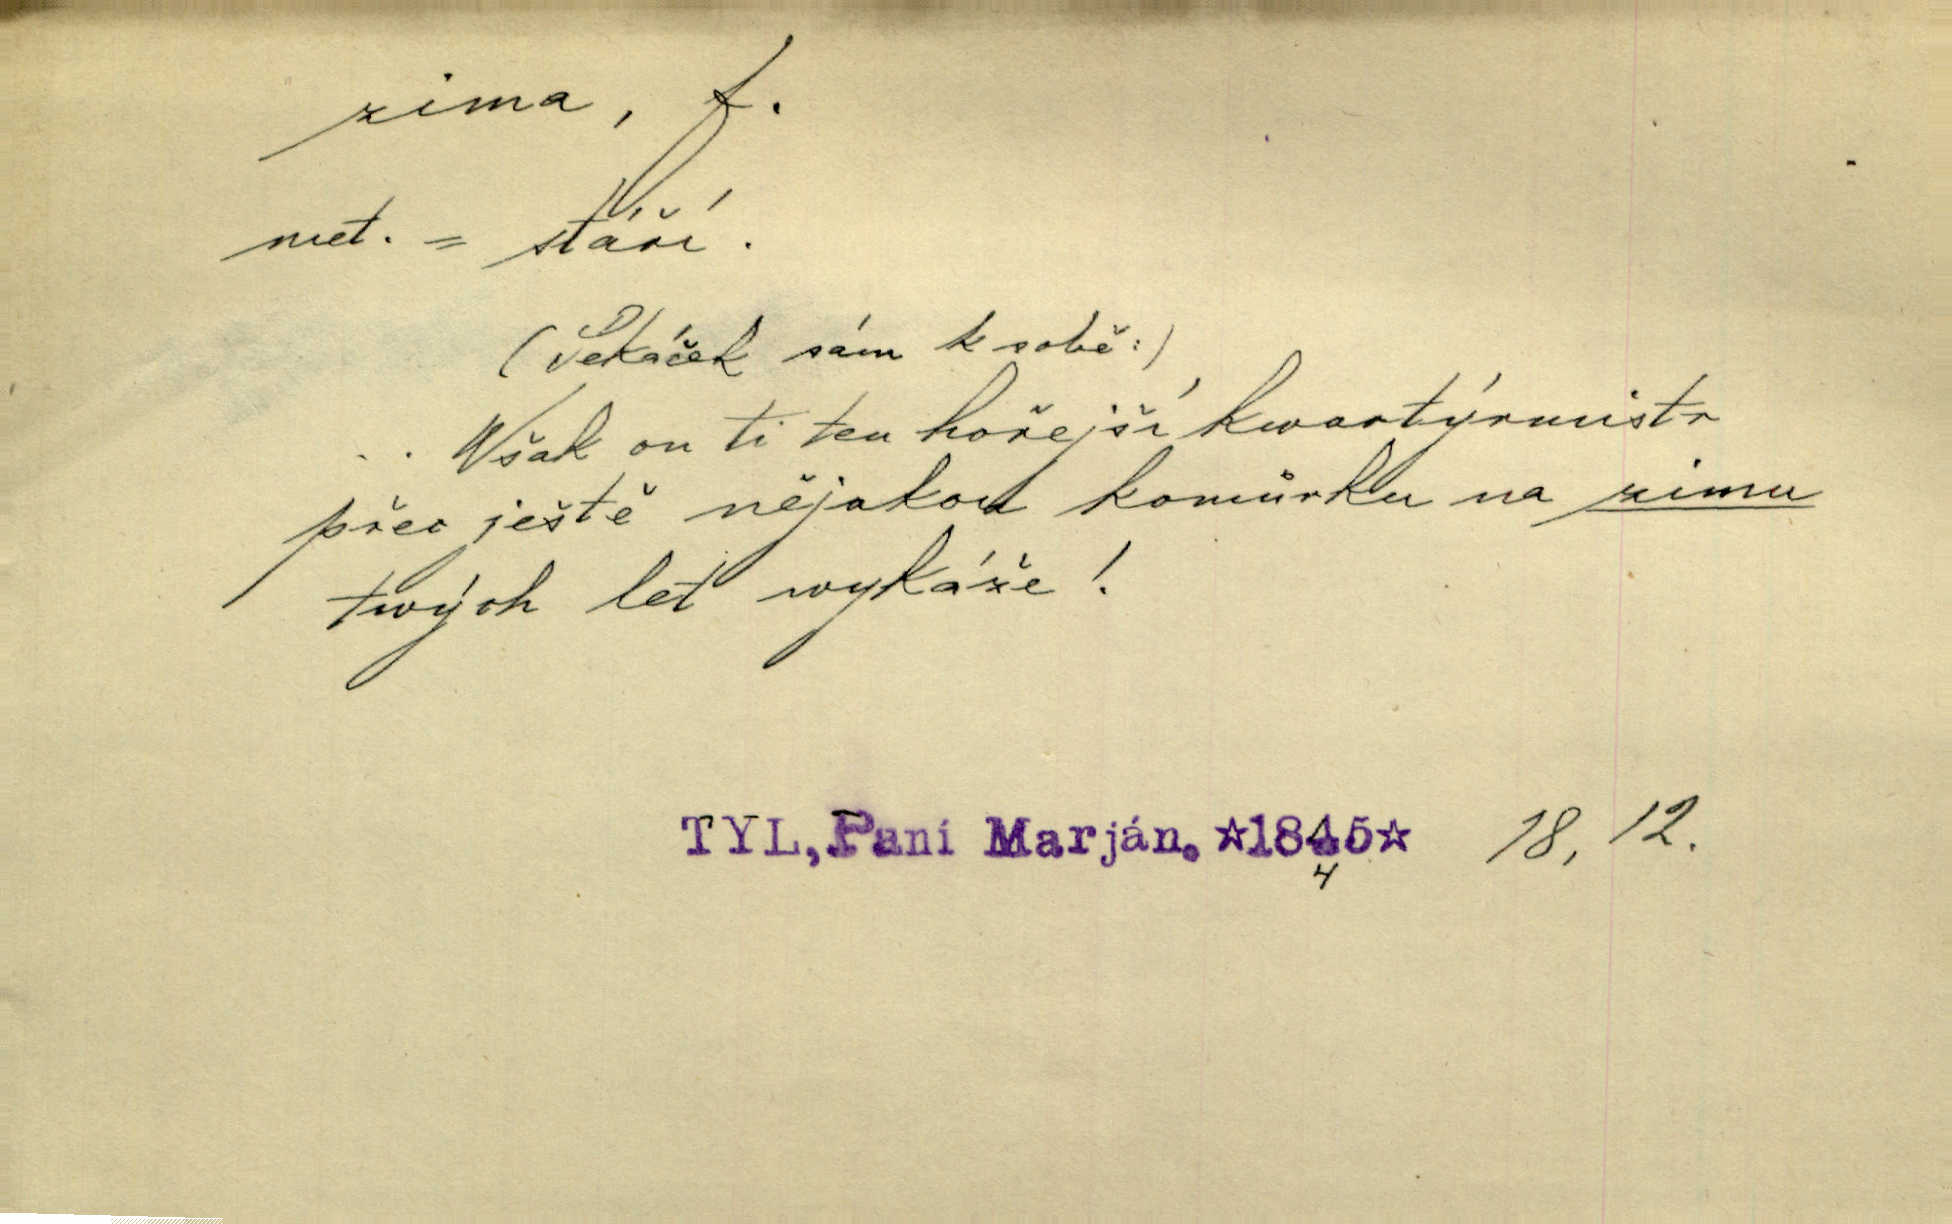 zima, f.
met. = stáří.
(Šekáček sám k sobě:)
.. Wšak on ti ten hořejší kwartýrmistr
přec ještě nějakou komůrku na zimu
twých let wykáže!
TYL, Paní Marján. ☆1845☆ 18, 12.
4